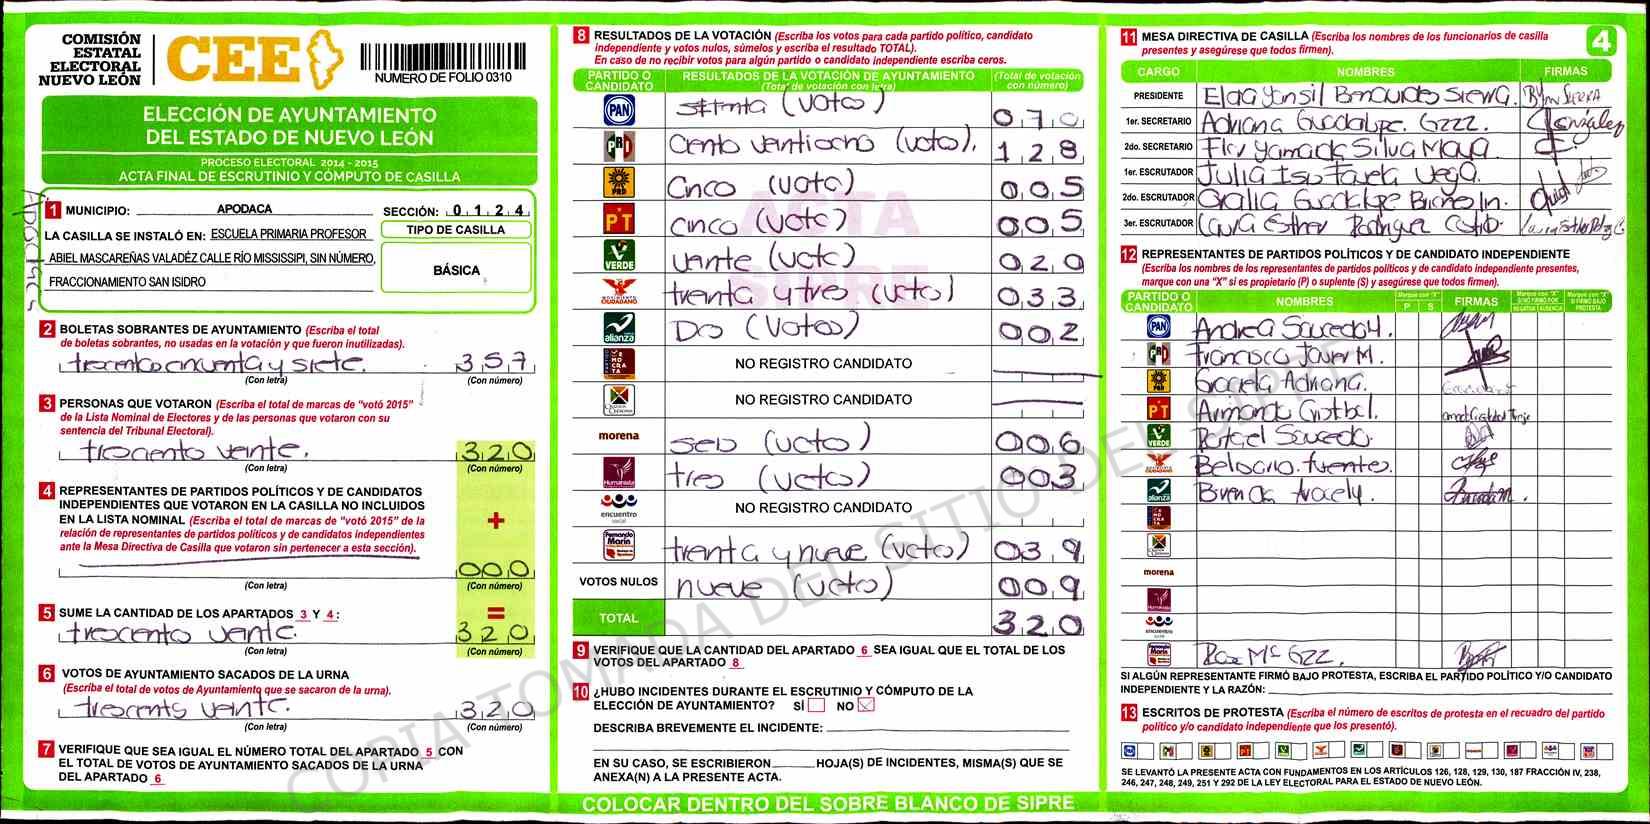 COMISIÓN
ESTATAL
ELECTORAL
NUEVO LEÓN
CEE
NUMERO DE FOLIO 0310
ELECCIÓN DE AYUNTAMIENTO
DEL ESTADO DE NUEVO LEÓN
PROCESO ELECTORAL 2014 - 2015
ACTA FINAL DE ESCRUTINIO Y CÓMPUTO DE CASILLA
1 MUNICIPIO: APODACA SECCIÓN: 0 1 2 4
LA CASILLA SE INSTALÓ EN: ESCUELA PRIMARIA PROFESOR
ABIEL MASCAREÑAS VALADÉZ CALLE RÍO MISSISSIPI, SIN NÚMERO,
FRACCIONAMIENTO SAN ISIDRO
TIPO DE CASILLA
BÁSICA
2 BOLETAS SOBRANTES DE AYUNTAMIENTO (Escriba el total
de boletas sobrantes, no usadas en la votación y que fueron inutilizadas).
trecento cincuenta y siete. 3 5 7
(Con letra) (Con número)
3 PERSONAS QUE VOTARON (Escriba el total de marcas de "votó 2015"
de la Lista Nominal de Electores y de las personas que votaron con su
sentencia del Tribunal Electoral).
treciento veinte. 3 2 0
(Con letra) (Con número)
4 REPRESENTANTES DE PARTIDOS POLÍTICOS Y DE CANDIDATOS
INDEPENDIENTES QUE VOTARON EN LA CASILLA NO INCLUIDOS
EN LA LISTA NOMINAL (Escriba el total de marcas de "votó 2015" de la
relación de representantes de partidos políticos y de candidatos independientes
ante la Mesa Directiva de Casilla que votaron sin pertenecer a esta sección).
+
0 0 0
(Con letra) (Con número)
5 SUME LA CANTIDAD DE LOS APARTADOS 3 Y 4 : =
trescento veinte. 3 2 0
(Con letra) (Con número)
6 VOTOS DE AYUNTAMIENTO SACADOS DE LA URNA
(Escriba el total de votos de Ayuntamiento que se sacaron de la urna).
trescents veinte. 3 2 0
(Con letra) (Con número)
7 VERIFIQUE QUE SEA IGUAL EL NÚMERO TOTAL DEL APARTADO 5 CON
EL TOTAL DE VOTOS DE AYUNTAMIENTO SACADOS DE LA URNA
DEL APARTADO 6
8 RESULTADOS DE LA VOTACIÓN (Escriba los votos para cada partido político, candidato
independiente y votos nulos, súmelos y escriba el resultado TOTAL).
En caso de no recibir votos para algún partido o candidato independiente escriba ceros.
PARTIDO O CANDIDATO RESULTADOS DE LA VOTACIÓN DE AYUNTAMIENTO (Total de votación con letra) (Total de votación con número)
PAN setenta (votos) 0 7 0
PRI ciento ventiocho (voto). 1 2 8
PRD cinco (voto) 0 0 5
PT cinco (voto) 0 0 5
VERDE vente (voto) 0 2 0
MOVIMIENTO CIUDADANO trenta y tres (voto) 0 3 3
alianza Dos (Votos) 0 0 2
DEMOCRATA NO REGISTRO CANDIDATO
NO REGISTRO CANDIDATO
morena seis (voto) 0 0 6
Humanista tres (voto) 0 0 3
encuentro social NO REGISTRO CANDIDATO
Fernando Marín trenta y nueve (voto) 0 3 9
VOTOS NULOS nueve (voto) 0 0 9
TOTAL 3 2 0
ACTA
SIPRE
9 VERIFIQUE QUE LA CANTIDAD DEL APARTADO 6 SEA IGUAL QUE EL TOTAL DE LOS
VOTOS DEL APARTADO 8
10 ¿HUBO INCIDENTES DURANTE EL ESCRUTINIO Y CÓMPUTO DE LA
ELECCIÓN DE AYUNTAMIENTO? SÍ NO X
DESCRIBA BREVEMENTE EL INCIDENTE:
EN SU CASO, SE ESCRIBIERON HOJA(S) DE INCIDENTES, MISMA(S) QUE SE
ANEXA(N) A LA PRESENTE ACTA.
COLOCAR DENTRO DEL SOBRE BLANCO DE SIPRE
COPIA TOMADA DEL SITIO DEL SIPRE
11 MESA DIRECTIVA DE CASILLA (Escriba los nombres de los funcionarios de casilla
presentes y asegúrese que todos firmen).
4
CARGO NOMBRES FIRMAS
PRESIDENTE Sierra.
1er. SECRETARIO Adriana Guadalupe. Gzzz. González
2do. SECRETARIO Flor Yamada Silva Maya
1er. ESCRUTADOR Julia Vega.
2do. ESCRUTADOR Guadalupe
3er. ESCRUTADOR Laura Esther Rodriguez
12 REPRESENTANTES DE PARTIDOS POLÍTICOS Y DE CANDIDATO INDEPENDIENTE
(Escriba los nombres de los representantes de partidos políticos y de candidato independiente presentes,
marque con una "X" si es propietario (P) o suplente (S) y asegúrese que todos firmen).
PARTIDO O CANDIDATO NOMBRES P S FIRMAS
PAN Andrea Saucedo H.
PRI Francisco Javier M.
PRD Graciela Adriana.
PT Armando Cristobal.
VERDE Rafael Saucedo.
Belocrio. fuentes.
alianza Brenda Aracely.
morena
Humanista
encuentro social
Rosa Mª Gzz.
SI ALGÚN REPRESENTANTE FIRMÓ BAJO PROTESTA, ESCRIBA EL PARTIDO POLÍTICO Y/O CANDIDATO
INDEPENDIENTE Y LA RAZÓN:
13 ESCRITOS DE PROTESTA (Escriba el número de escritos de protesta en el recuadro del partido
político y/o candidato independiente que los presentó).
SE LEVANTÓ LA PRESENTE ACTA CON FUNDAMENTOS EN LOS ARTÍCULOS 126, 128, 129, 130, 187 FRACCIÓN IV, 238,
246, 247, 248, 249, 251 Y 292 DE LA LEY ELECTORAL PARA EL ESTADO DE NUEVO LEÓN.